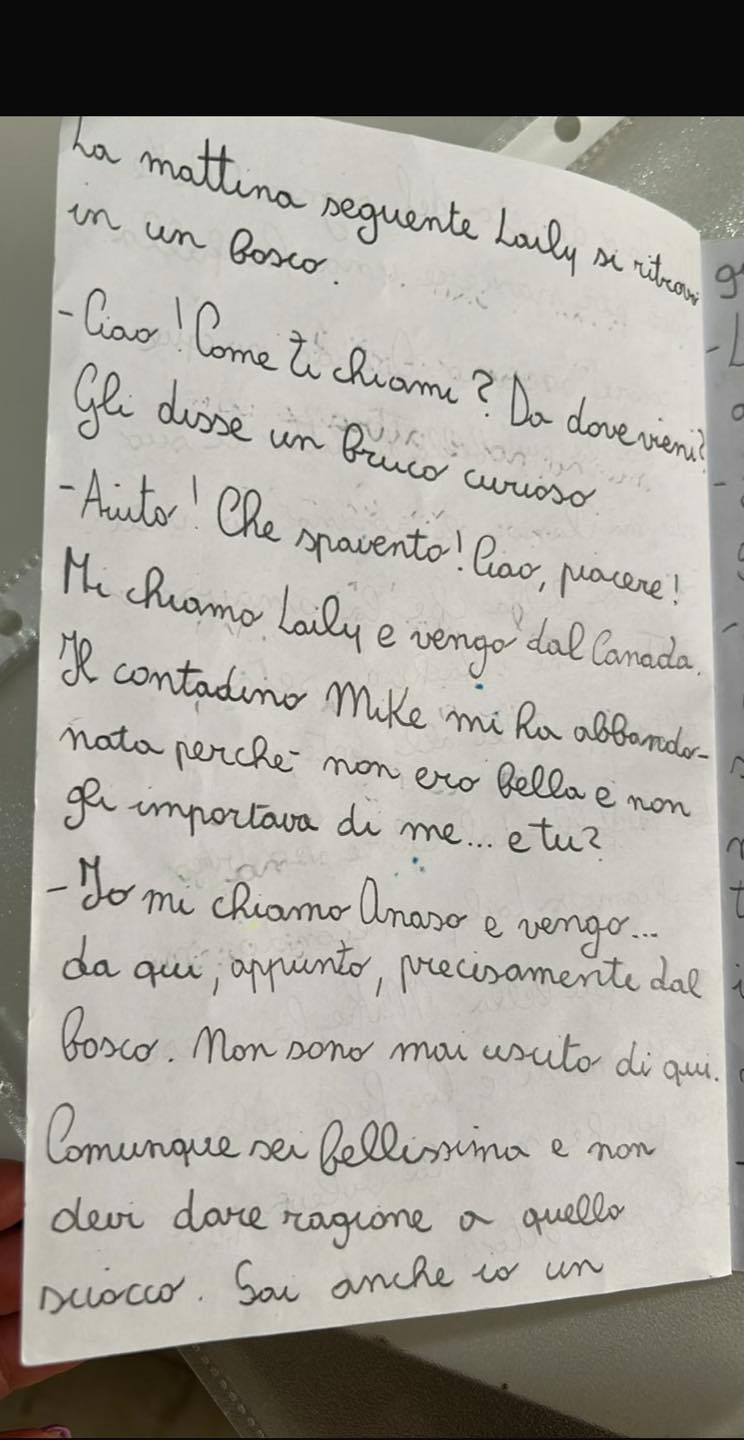 La mattina seguente Laily si ritrovò
in un bosco.
-Ciao! Come ti chiami? Da dove vieni?
Gli disse un bruco curioso.
-Aiuto! Che spavento! Ciao, piacere!
Mi chiamo Laily e vengo dal Canada.
Il contadino Mike mi ha abbando-
nata perché non ero bella e non
gli importava di me... e tu?
-Io mi chiamo Anaso e vengo...
da qui, appunto, precisamente dal
bosco. Non sono mai uscito di qui.
Comunque sei bellissima e non
devi dare ragione a quello
sciocco. Sai anche io un